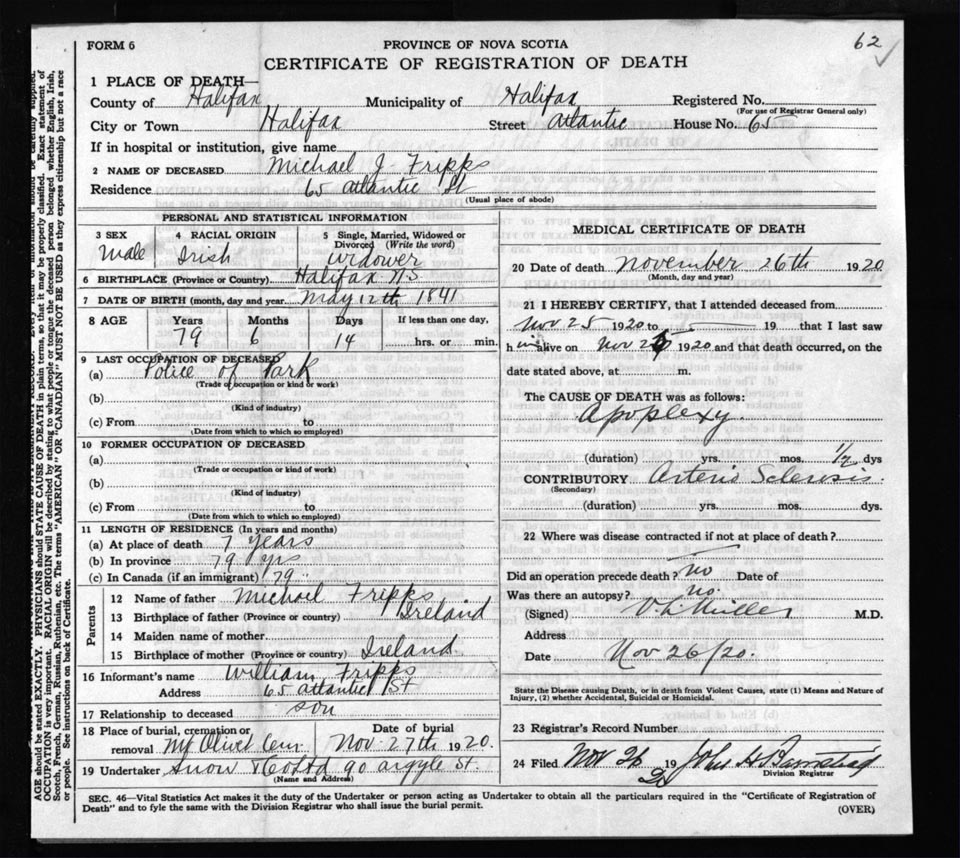 62
FORM 6
PROVINCE OF NOVA SCOTIA
CERTIFICATE OF REGISTRATION OF DEATH
1 PLACE OF DEATH—
County of Halifax Municipality of Halifax Registered No.
(For use of Registrar General only)
City or Town Halifax Street Atlantic House No. 65
If in hospital or institution, give name
2 NAME OF DECEASED Michael J. Fripps
Residence 65 Atlantic St
(Usual place of abode)
PERSONAL AND STATISTICAL INFORMATION
3 SEX
Male
4 RACIAL ORIGIN
Irish
5 Single, Married, Widowed or Divorced (Write the word)
Widower
6 BIRTHPLACE (Province or Country) Halifax NS
7 DATE OF BIRTH (month, day and year) May 12th 1841
8 AGE Years Months Days If less than one day,
79 6 14 hrs. or min.
9 LAST OCCUPATION OF DECEASED
(a) Police of Park
(Trade or occupation or kind or work)
(b)
(Kind of industry)
(c) From to
(Date from which to which so employed)
10 FORMER OCCUPATION OF DECEASED
(a)
(Trade or occupation or kind or work)
(b)
(Kind of industry)
(c) From to
(Date from which to which so employed)
11 LENGTH OF RESIDENCE (In years and months)
(a) At place of death 7 years
(b) In province 79 yrs
(c) In Canada (if an immigrant) 79
Parents
12 Name of father Michael Fripps
13 Birthplace of father (Province or country) Ireland
14 Maiden name of mother
15 Birthplace of mother (Province or country) Ireland
16 Informant's name William Fripps
Address 65 Atlantic St
17 Relationship to deceased son
18 Place of burial, cremation or removal Mt Olivet Cem.
Date of burial
Nov 27th 1920.
19 Undertaker Snow & Co Ltd 90 Argyle St.
(Name and Address)
MEDICAL CERTIFICATE OF DEATH
20 Date of death November 26th 1920
(Month, day and year)
21 I HEREBY CERTIFY, that I attended deceased from
Nov 25 1920 to 19 that I last saw
h im alive on Nov 1920 and that death occurred, on the
date stated above, at m.
The CAUSE OF DEATH was as follows:
Apoplexy
(duration) yrs. mos. 1/2 dys
CONTRIBUTORY Arterio Sclerosis.
(Secondary)
(duration) yrs. mos. dys.
22 Where was disease contracted if not at place of death?
Did an operation precede death? no Date of
Was there an autopsy? no.
(Signed) Miller M.D.
Address
Date Nov 26/20.
State the Disease causing Death, or in death from Violent Causes, state (1) Means and Nature of
Injury, (2) whether Accidental, Suicidal or Homicidal.
23 Registrar's Record Number
24 Filed Nov 26 19 20
Division Registrar
SEC. 46—Vital Statistics Act makes it the duty of the Undertaker or person acting as Undertaker to obtain all the particulars required in the "Certificate of Registration of
Death" and to fyle the same with the Division Registrar who shall issue the burial permit.
(OVER)
AGE should be stated EXACTLY. PHYSICIANS should STATE CAUSE OF DEATH in plain terms, so that it may be properly classified. Exact statement of
OCCUPATION is very important. RACIAL ORIGIN will be described by stating to what people or tongue the deceased person belonged whether English, Irish,
Scotch, French, German, Russian, Ruthenian, etc. The terms "AMERICAN" OR "CANADIAN" MUST NOT BE USED as they express citizenship but not a race
or people. See instructions on back of Certificate.